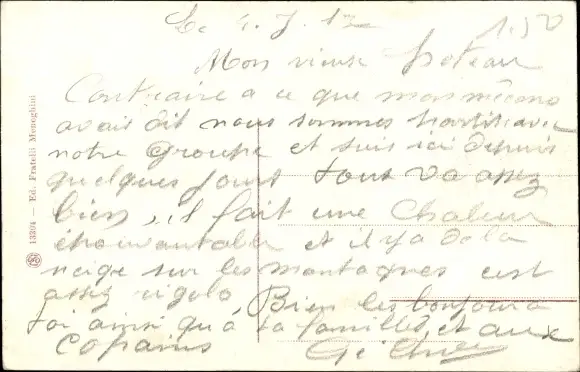 Le 4.7.17
1.50
Mon vieux
Contraire a ce que
avait dit nous sommes
notre Groupe et suis ici depuis
quelques jours tous va assez
bien, il fait une Chaleur
épouvantable et il y a de la
neige sur les montagnes c'est
assez rigolo. Bien les bonjours a
toi ainsi qu'à ta familles et aux
Copains
13204 — Ed. Fratelli Meneghini